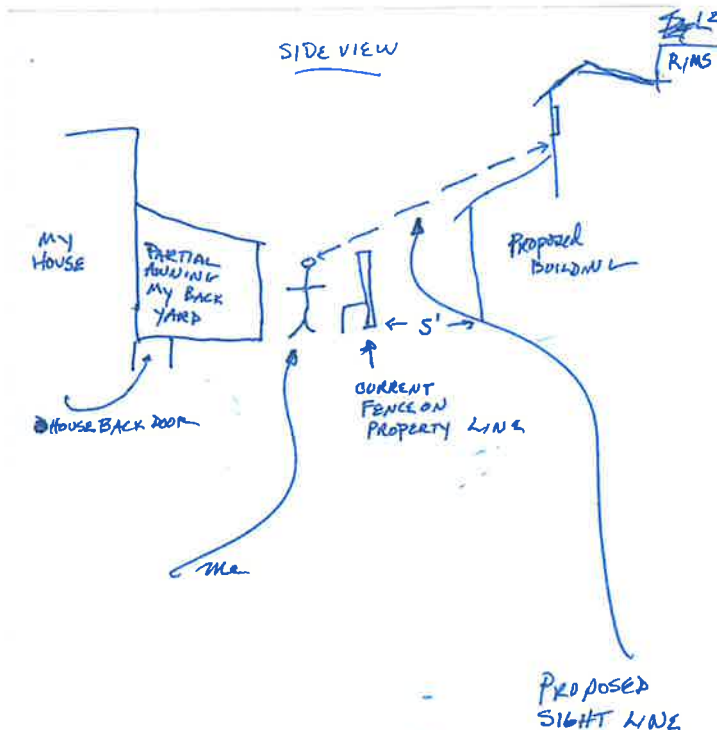 SIDE VIEW
RIMS
MY
HOUSE
PARTIAL
AWNING
MY BACK
YARD
PROPOSED
BUILDING
5'
CURRENT
FENCE ON
PROPERTY LINE
HOUSE BACK DOOR
Me
PROPOSED
SIGHT LINE